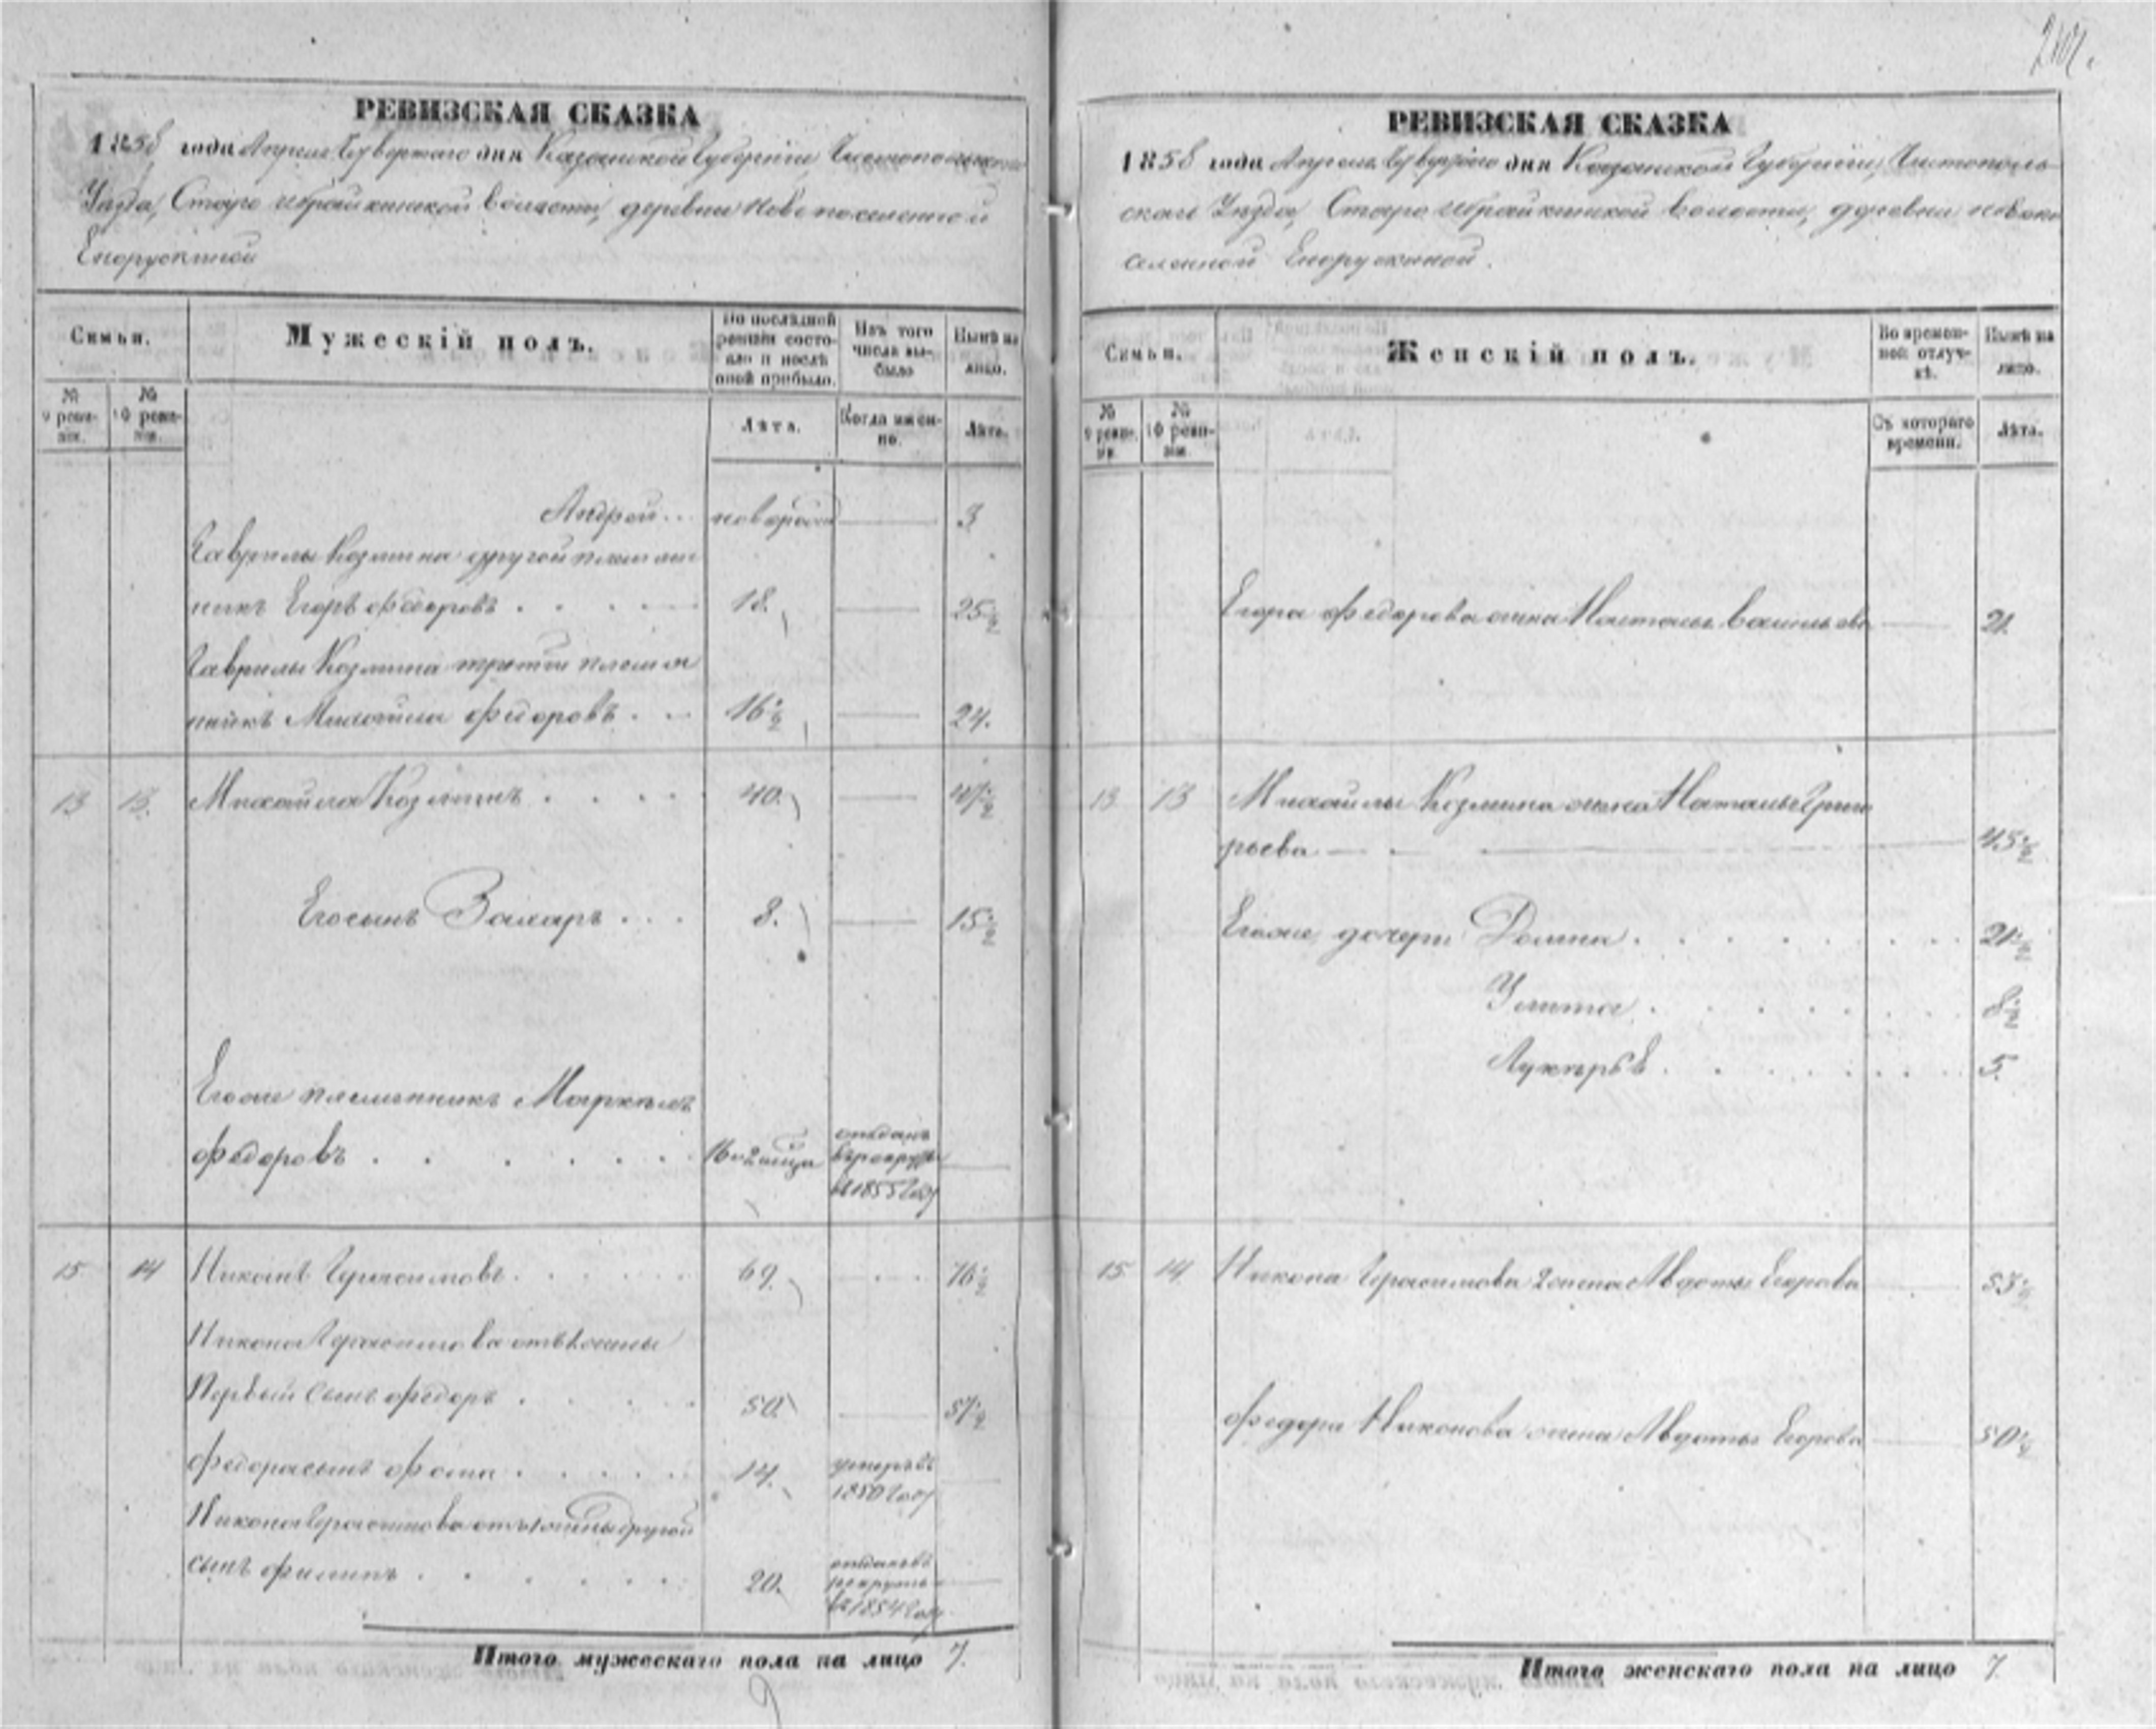 РЕВИЗСКАЯ СКАЗКА
1858 года Апреля Четвертого дня Казанской Губернии, Чистопольского
Уезда, Старо волости, деревни Новопоселенной
Семьи.
Мужескій полъ.
По последней ревизіи состояло и после оной прибыло.
Изъ того числа выбыло
Ныне на лицо.
№ 9 ревизіи.
№ 10 ревизіи.
Лѣта.
Когда именно.
Лѣта.
Андрей новорож 3
Гаврилы Козмина другой племян
никъ Егоръ Федоровъ 18. 25½
Гаврилы Козмина третій племян
никъ Михайла Федоровъ 16½ 24.
13 13. Михайла Козминъ 40. 47½
Его сынъ Захаръ 8. 15½
Его же племянникъ
Федоровъ отданъ
въ рекруты
въ 1855 году
15 14 Никонъ Герасимовъ 69. 76½
Никона Герасимова
Первый сынъ Федоръ 50. 57½
Федора сынъ Фома 14. умеръ въ
1850 году
Никона Герасимова другой
сынъ Филипъ 20. отданъ въ
рекруты
въ 1854 году
Итого мужескаго пола на лицо 7.
РЕВИЗСКАЯ СКАЗКА
1858 года Апреля Четвертого дня Казанской Губернии, Чистополь
скаго Уезда, Старо волости, деревни новопо
селенной
Семьи.
Женскій полъ.
Во временной отлучкѣ.
Нынѣ на лицо.
№ 9 ревизіи.
№ 10 ревизіи.
Съ котораго времени.
Лѣта.
Егора Федорова жена Наталья Васильева 21.
13 13 Михайлы Козмина жена Наталья Григо
рьева 45½
Его же дочери Домна 21½
Улита 8½
5.
15 14 Никона Герасимова 2 жена Авдотья Егорова 53½
Федора Никонова жена Авдотья Егорова 50½
Итого женскаго пола на лицо 7.